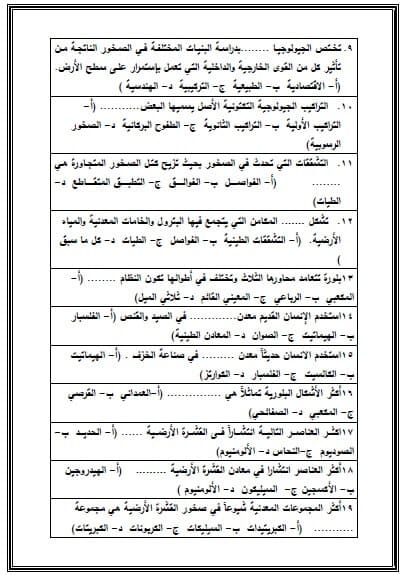 ٩. تختص الجيولوجيا ........بدراسة البنيات المختلفة في الصخور الناتجة من
تأثير كل من القوى الخارجية والداخلية التي تعمل بإستمرار على سطح الأرض.
(أ- الاقتصادية ب- الطبيعية ج- التركيبية د- الهندسية )
١٠. التراكيب الجيولوجية التكتونية الأصل يسميها البعض............ (أ-
التراكيب الأولية ب- التراكيب الثانوية ج- الطفوح البركانية د- الصخور
الرسوبية)
١١. التشققات التي تحدث في الصخور بحيث تزيح كتل الصخور المتجاورة هي
........ (أ- الفواصل ب- الفوالق ج- التطبق المتقاطع د-
الطيات)
١٢. تشكل ....... المكامن التي يتجمع فيها البترول والخامات المعدنية والمياه
الأرضية. (أ- التشققات الطينية ب- الفواصل ج- الطيات د- كل ما سبق
)
١٣بلورة تتعامد محاورها الثلاث وتختلف في أطوالها تكون النظام ........ (أ-
المكعبي ب- الرباعي ج- المعيني القائم د- ثلاثي الميل)
١٤استخدم الإنسان القديم معدن............. في الصيد والقنص (أ- الفلسبار
ب- الهيماتيت ج- الصوان د- المعادن الطينية)
١٥استخدم الانسان حديثاً معدن ......... في صناعة الخزف . (أ- الهيماتيت
ب- الكالسيت ج- الفلسبار د- الكوارتز)
١٦أكثر الأشكال البلورية تماثلاً هي .............. (أ-العمداني ب- القرصي
ج- المكعبي د- الصفائحي)
١٧اكثر العناصر التالية انتشاراً فى القشرة الأرضية ...... (أ- الحديد ب-
الصوديوم ج-النحاس د- الألومنيوم)
١٨أكثر العناصر انتشارا في معادن القشرة الأرضية ......... (أ- الهيدروجين
ب- الأكسجين ج- السيليكون د- الألومنيوم )
١٩أكثر المجموعات المعدنية شيوعاً في صخور القشرة الأرضية هي مجموعة
........... (أ- الكبريتيدات ب- السيليكات ج- الكربونات د- الكبريتات)